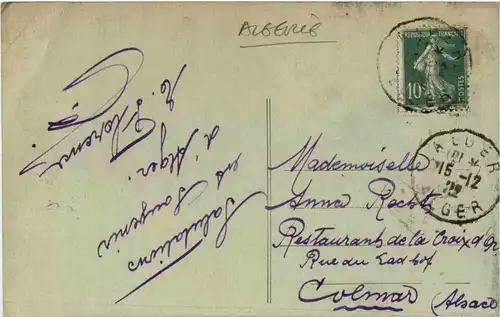 ALGERIE
REPUBLIQUE FRANCAISE
10c
POSTES
ALGER
15-12
ALGER
Salutations
et Souvenirs
d'Alger.
Florence
Mademoiselle
Anna
Restaurant de la Croix d'Or
Rue du Ladhof
Colmar (Alsace)